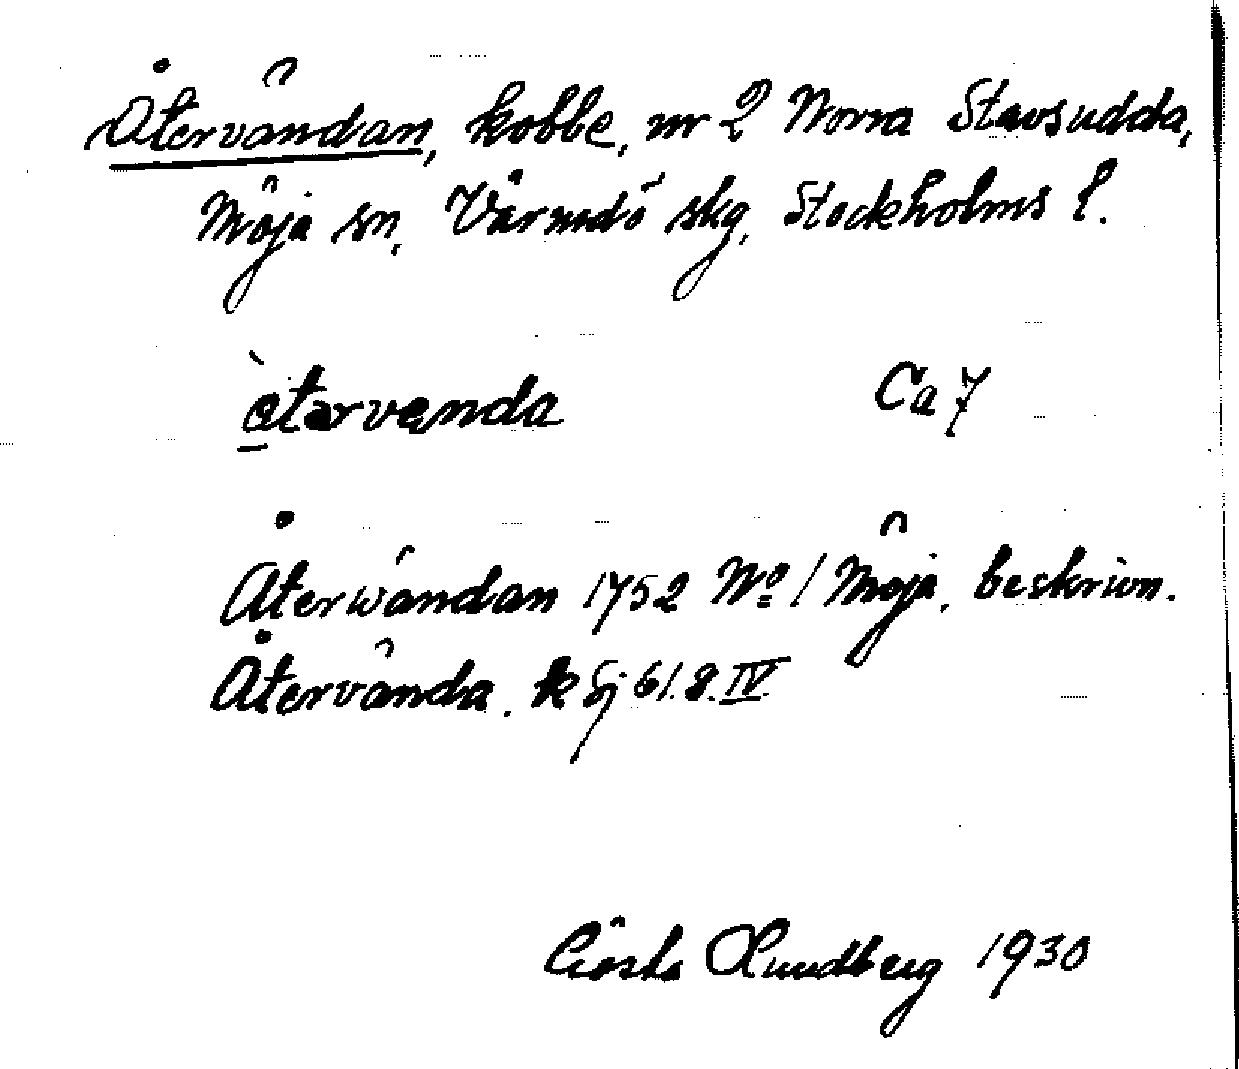 Återvändan, kobbe, nr 2 Norra Stavsudda,
Möja sn, Värmdö skg, Stockholms l.
àtərvenda Ca 7
Återwändan 1752 No 1 Möja, beskrivn.
Återvända. k Sj 61. 8. IV
Gösta Lundberg 1930